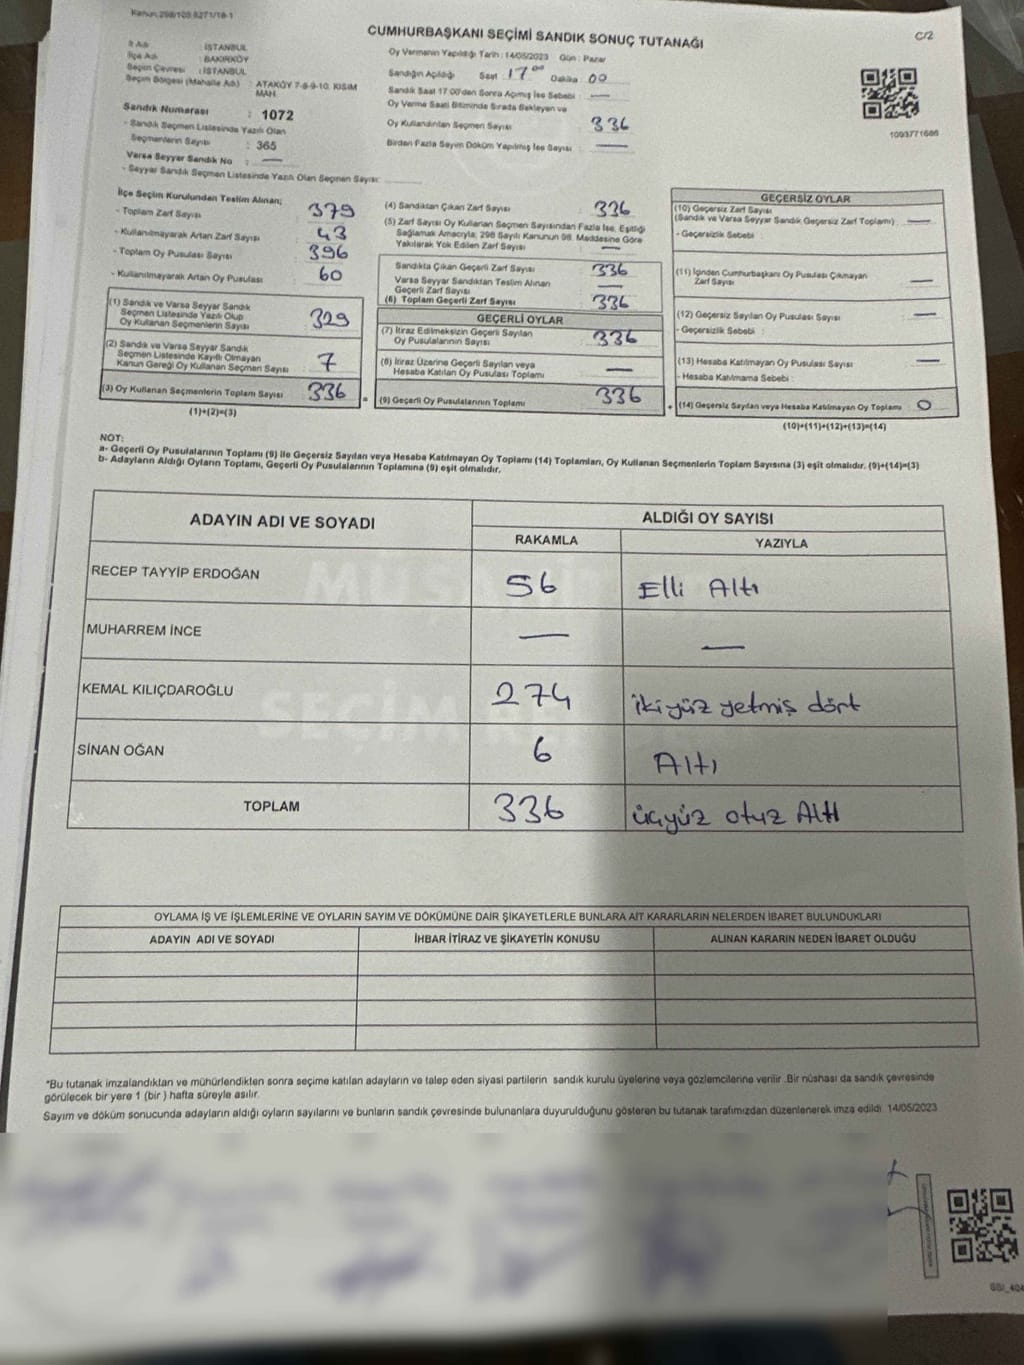 Kanun 298/105 6271/18-1
CUMHURBAŞKANI SEÇİMİ SANDIK SONUÇ TUTANAĞI
C/2
İl Adı : İSTANBUL
İlçe Adı : BAKIRKÖY
Seçim Çevresi : İSTANBUL
Seçim Bölgesi (Mahalle Adı) : ATAKÖY 7-8-9-10. KISIM MAH.
Sandık Numarası : 1072
- Sandık Seçmen Listesinde Yazılı Olan
Seçmenlerin Sayısı : 365
Varsa Seyyar Sandık No : —
- Seyyar Sandık Seçmen Listesinde Yazılı Olan Seçmen Sayısı:
Oy Vermenin Yapıldığı Tarih : 14/05/2023 Gün : Pazar
Sandığın Açıldığı Saat 17 00 Dakika 00
Sandık Saat 17.00'den Sonra Açılmış İse Sebebi : —
Oy Verme Saati Bitiminde Sırada Bekleyen ve
Oy Kullandırılan Seçmen Sayısı : 336
Birden Fazla Sayım Döküm Yapılmış İse Sayısı : —
1093771686
İlçe Seçim Kurulundan Teslim Alınan;
- Toplam Zarf Sayısı : 379
- Kullanılmayarak Artan Zarf Sayısı : 43
- Toplam Oy Pusulası Sayısı : 396
- Kullanılmayarak Artan Oy Pusulası : 60
(1) Sandık ve Varsa Seyyar Sandık
Seçmen Listesinde Yazılı Olup
Oy Kullanan Seçmenlerin Sayısı 329
(2) Sandık ve Varsa Seyyar Sandık
Seçmen Listesinde Kayıtlı Olmayan
Kanun Gereği Oy Kullanan Seçmen Sayısı 7
(3) Oy Kullanan Seçmenlerin Toplam Sayısı 336
(1)+(2)=(3)
(4) Sandıktan Çıkan Zarf Sayısı : 336
(5) Zarf Sayısı Oy Kullanan Seçmen Sayısından Fazla İse, Eşitliği
Sağlamak Amacıyla; 298 Sayılı Kanunun 98. Maddesine Göre
Yakılarak Yok Edilen Zarf Sayısı —
Sandıkta Çıkan Geçerli Zarf Sayısı 336
Varsa Seyyar Sandıktan Teslim Alınan
Geçerli Zarf Sayısı —
(6) Toplam Geçerli Zarf Sayısı 336
GEÇERLİ OYLAR
(7) İtiraz Edilmeksizin Geçerli Sayılan
Oy Pusulalarının Sayısı 336
(8) İtiraz Üzerine Geçerli Sayılan veya
Hesaba Katılan Oy Pusulası Toplamı —
(9) Geçerli Oy Pusulalarının Toplamı 336
GEÇERSİZ OYLAR
(10) Geçersiz Zarf Sayısı
(Sandık ve Varsa Seyyar Sandık Geçersiz Zarf Toplamı) : —
- Geçersizlik Sebebi :
(11) İçinden Cumhurbaşkanı Oy Pusulası Çıkmayan
Zarf Sayısı —
(12) Geçersiz Sayılan Oy Pusulası Sayısı : —
- Geçersizlik Sebebi :
(13) Hesaba Katılmayan Oy Pusulası Sayısı : —
- Hesaba Katılmama Sebebi :
(14) Geçersiz Sayılan veya Hesaba Katılmayan Oy Toplamı 0
(10)+(11)+(12)+(13)=(14)
NOT:
a- Geçerli Oy Pusulalarının Toplamı (9) ile Geçersiz Sayılan veya Hesaba Katılmayan Oy Toplamı (14) Toplamları, Oy Kullanan Seçmenlerin Toplam Sayısına (3) eşit olmalıdır. (9)+(14)=(3)
b- Adayların Aldığı Oyların Toplamı, Geçerli Oy Pusulalarının Toplamına (9) eşit olmalıdır.
ADAYIN ADI VE SOYADI ALDIĞI OY SAYISI
RAKAMLA YAZIYLA
RECEP TAYYİP ERDOĞAN 56 Elli Altı
MUHARREM İNCE — —
KEMAL KILIÇDAROĞLU 274 ikiyüz yetmiş dört
SİNAN OĞAN 6 Altı
TOPLAM 336 üçyüz otuz Altı
OYLAMA İŞ VE İŞLEMLERİNE VE OYLARIN SAYIM VE DÖKÜMÜNE DAİR ŞİKAYETLERLE BUNLARA AİT KARARLARIN NELERDEN İBARET BULUNDUKLARI
ADAYIN ADI VE SOYADI İHBAR İTİRAZ VE ŞİKAYETİN KONUSU ALINAN KARARIN NEDEN İBARET OLDUĞU
"Bu tutanak imzalandıktan ve mühürlendikten sonra seçime katılan adayların ve talep eden siyasi partilerin sandık kurulu üyelerine veya gözlemcilerine verilir .Bir nüshası da sandık çevresinde
görülecek bir yere 1 (bir ) hafta süreyle asılır.
Sayım ve döküm sonucunda adayların aldığı oyların sayılarını ve bunların sandık çevresinde bulunanlara duyurulduğunu gösteren bu tutanak tarafımızdan düzenlenerek imza edildi. 14/05/2023